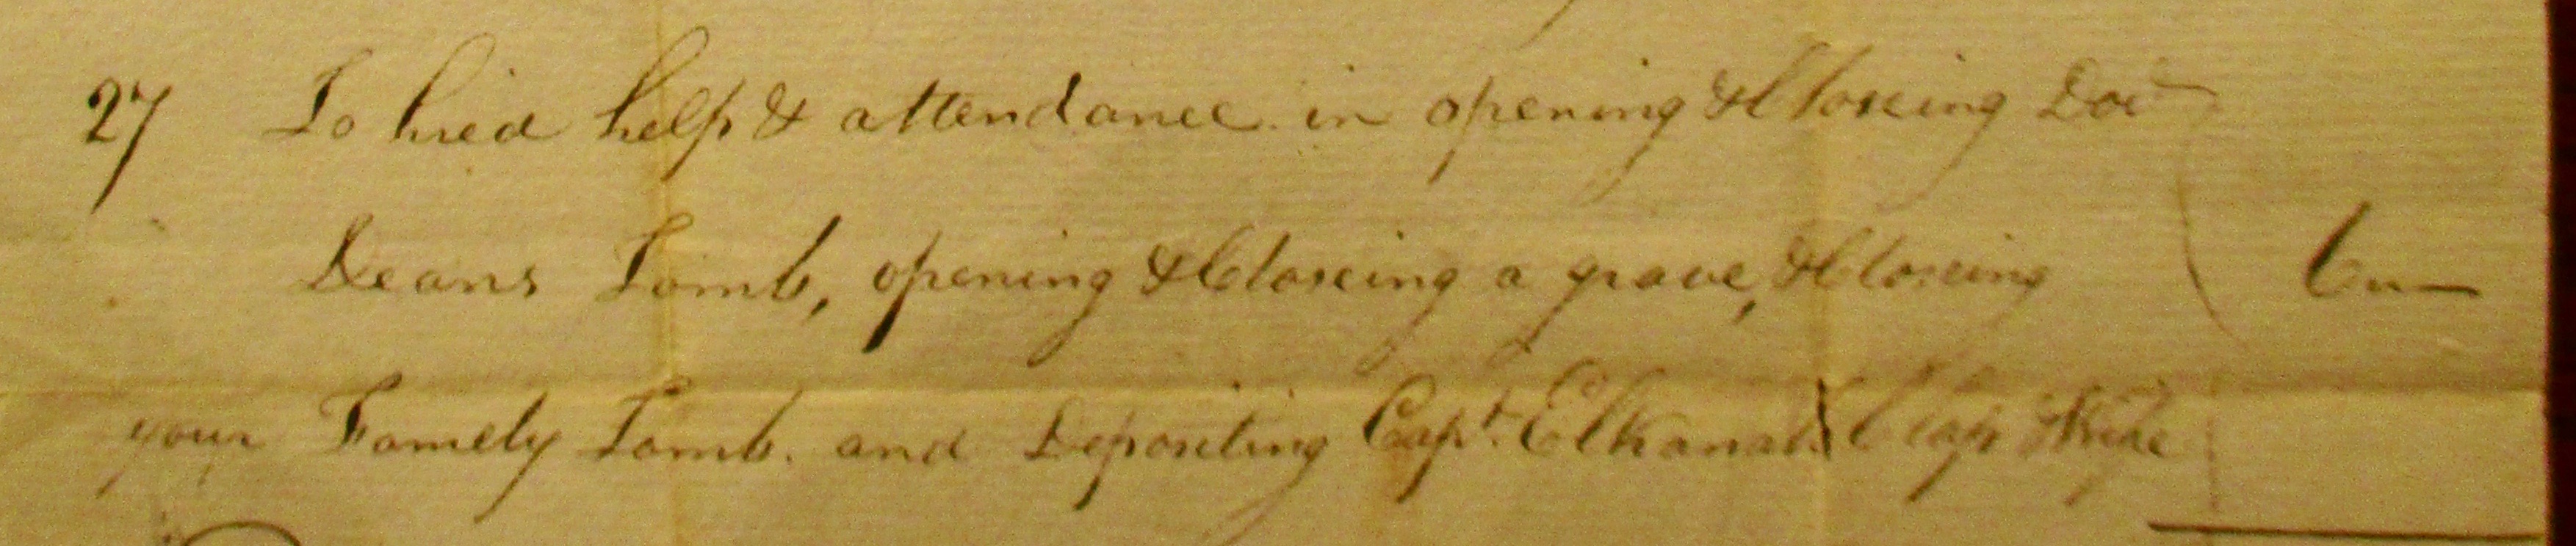 27 To hired help & attendance in opening & Closeing Doct
Deans Tomb, opening & Closeing a grave, & Closeing 6"—
your Famely Tomb. and Depositing Capt. Elkanah Clap Wife